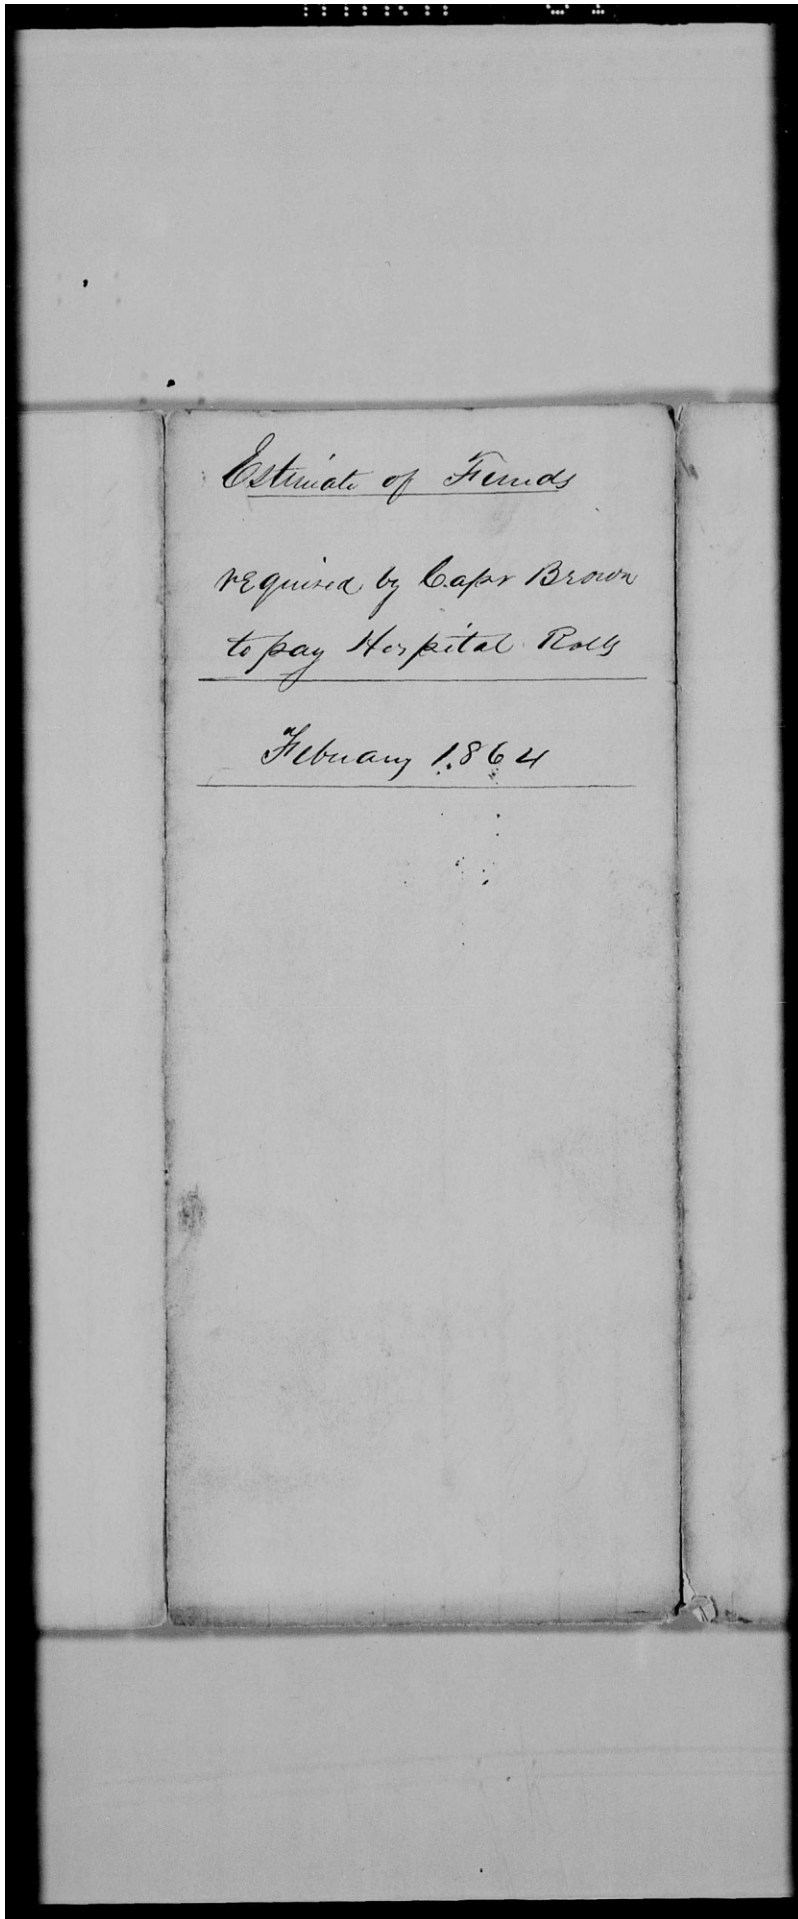 Estimate of Funds
required by Capt Brown
to pay Hospital Rolls
February 1864